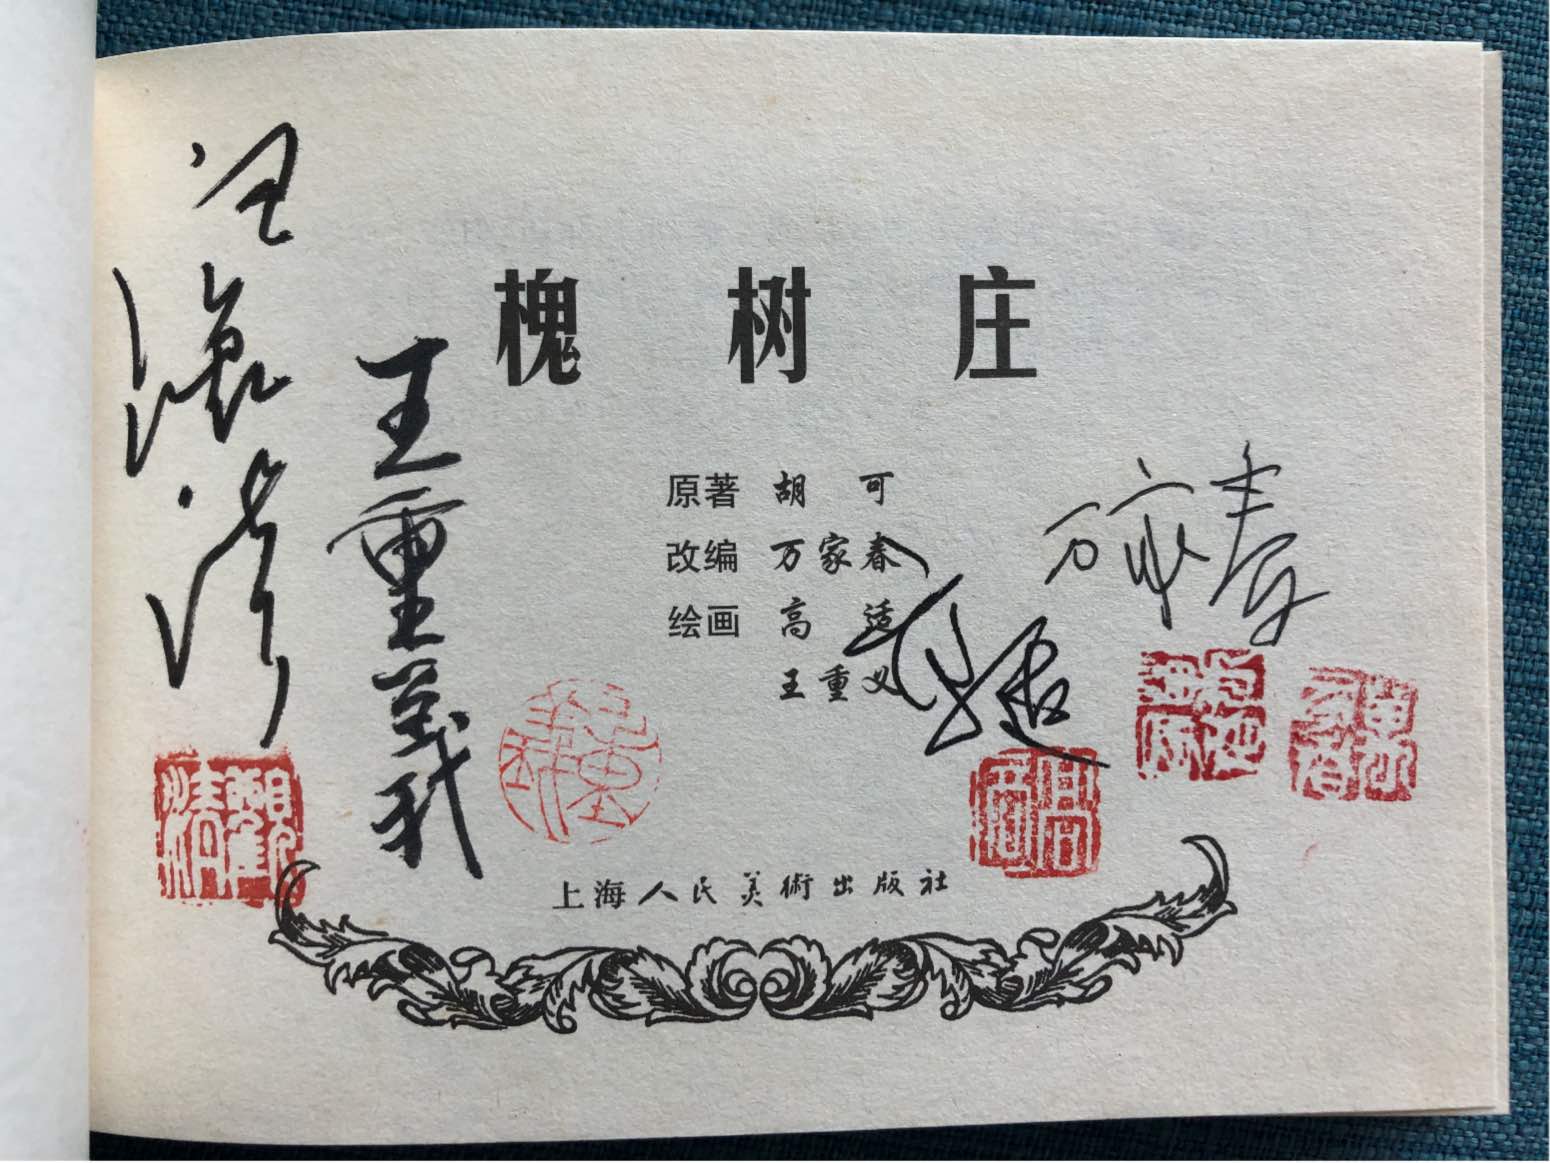 槐树庄
原著 胡可
改编 万家春
绘画 高适
王重义
上海人民美術出版社
汪观清
王重義
万家春
高适